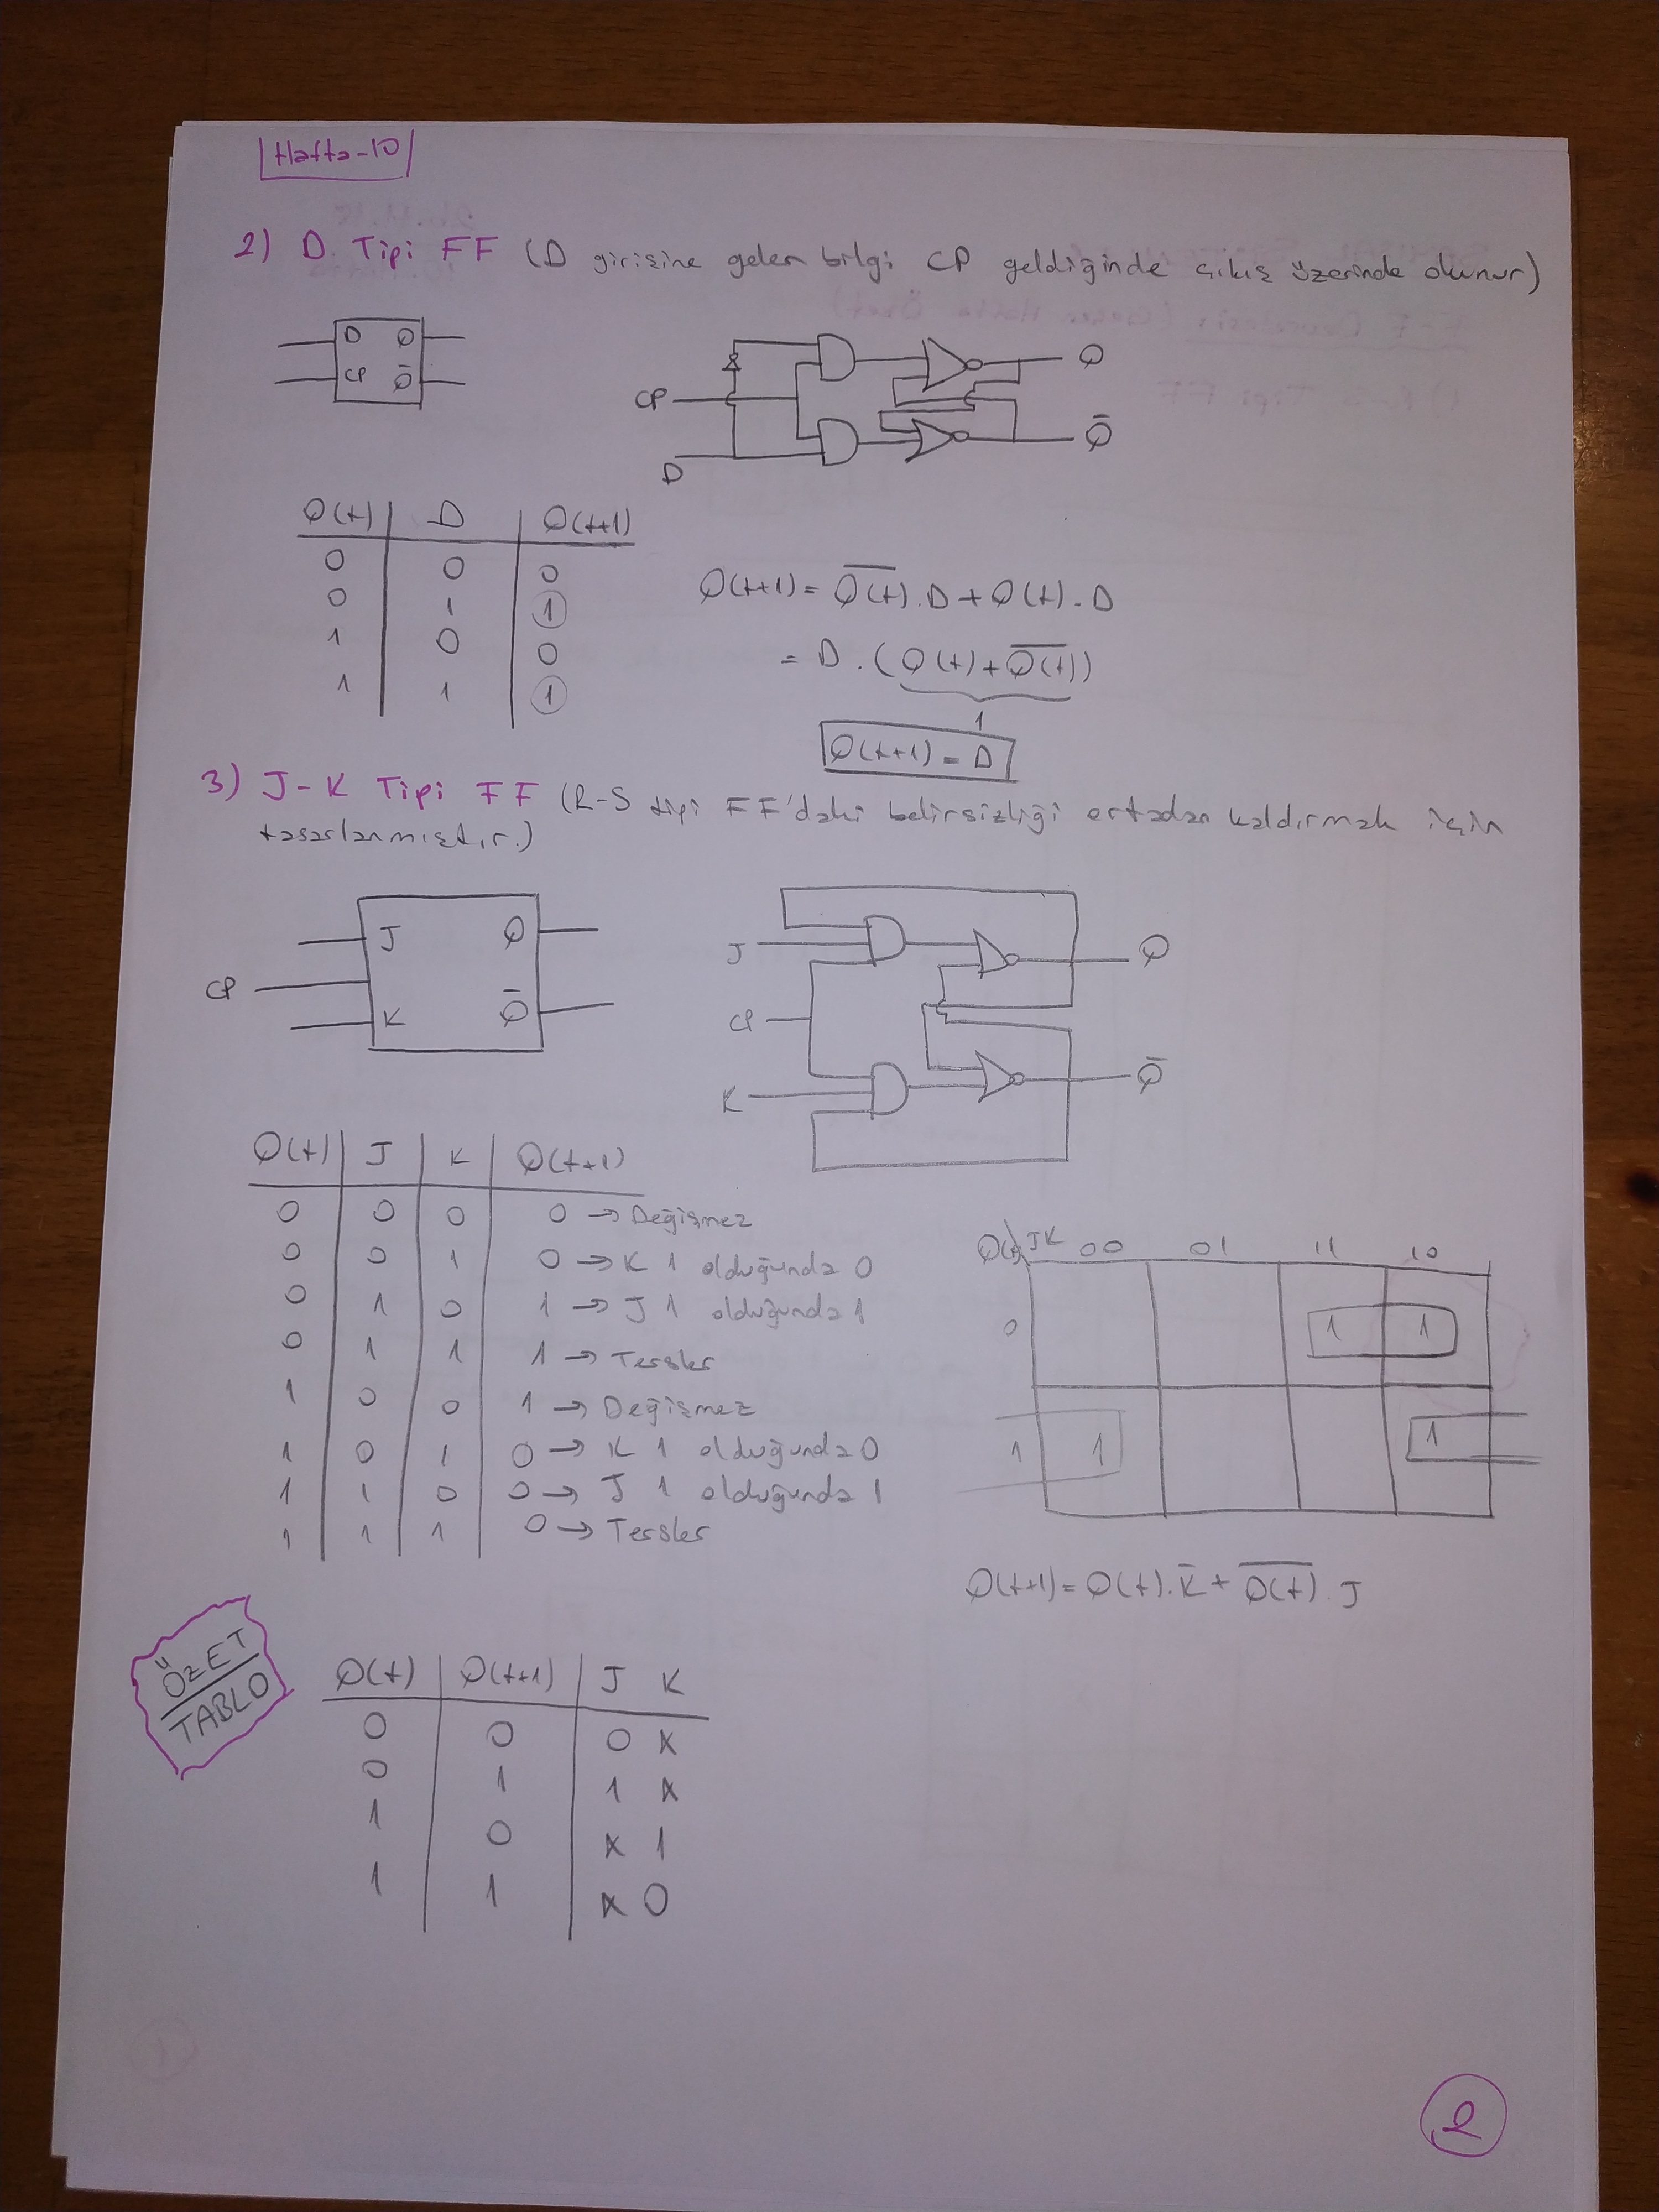 Hafta-10
2) D Tipi FF (D girişine gelen bilgi CP geldiğinde çıkış üzerinde
D Q
CP Q̅
CP
D
Q
Q̅
Q(t) D Q(t+1)
0 0 0
0 1 1
1 0 0
1 1 1
Q(t+1) = Q̅(̅t̅)̅.D + Q(t).D
= D.(Q(t)+Q̅(̅t̅)̅)
1
Q(t+1) = D
3) J-K Tipi FF (R-S tipi FF'daki belirsizliği ortadan kaldırmak için
tasarlanmıştır.)
CP
J Q
K Q̅
J
CP
K
Q
Q̅
Q(t) J K Q(t+1)
0 0 0 0 → Değişmez
0 0 1 0 → K 1 olduğunda 0
0 1 0 1 → J 1 olduğunda 1
0 1 1 1 → Tersler
1 0 0 1 → Değişmez
1 0 1 0 → K 1 olduğunda 0
1 1 0 0 → J 1 olduğunda 1
1 1 1 0 → Tersler
Q(t) JK 00 01 11 10
0 1 1
1 1 1
Q(t+1) = Q(t).K̅ + Q̅(̅t̅)̅.J
ÖZET
TABLO
Q(t) Q(t+1) J K
0 0 0 X
0 1 1 X
1 0 X 1
1 1 X 0
2